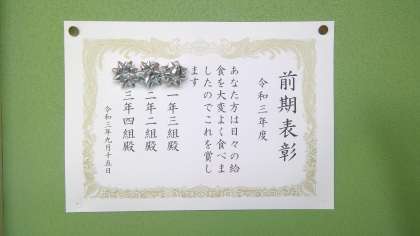 前期表彰
令和三年度
あなた方は日々の給
食を大変よく食べま
したのでこれを賞し
ます
一年三組殿
二年二組殿
三年四組殿
令和三年九月十五日